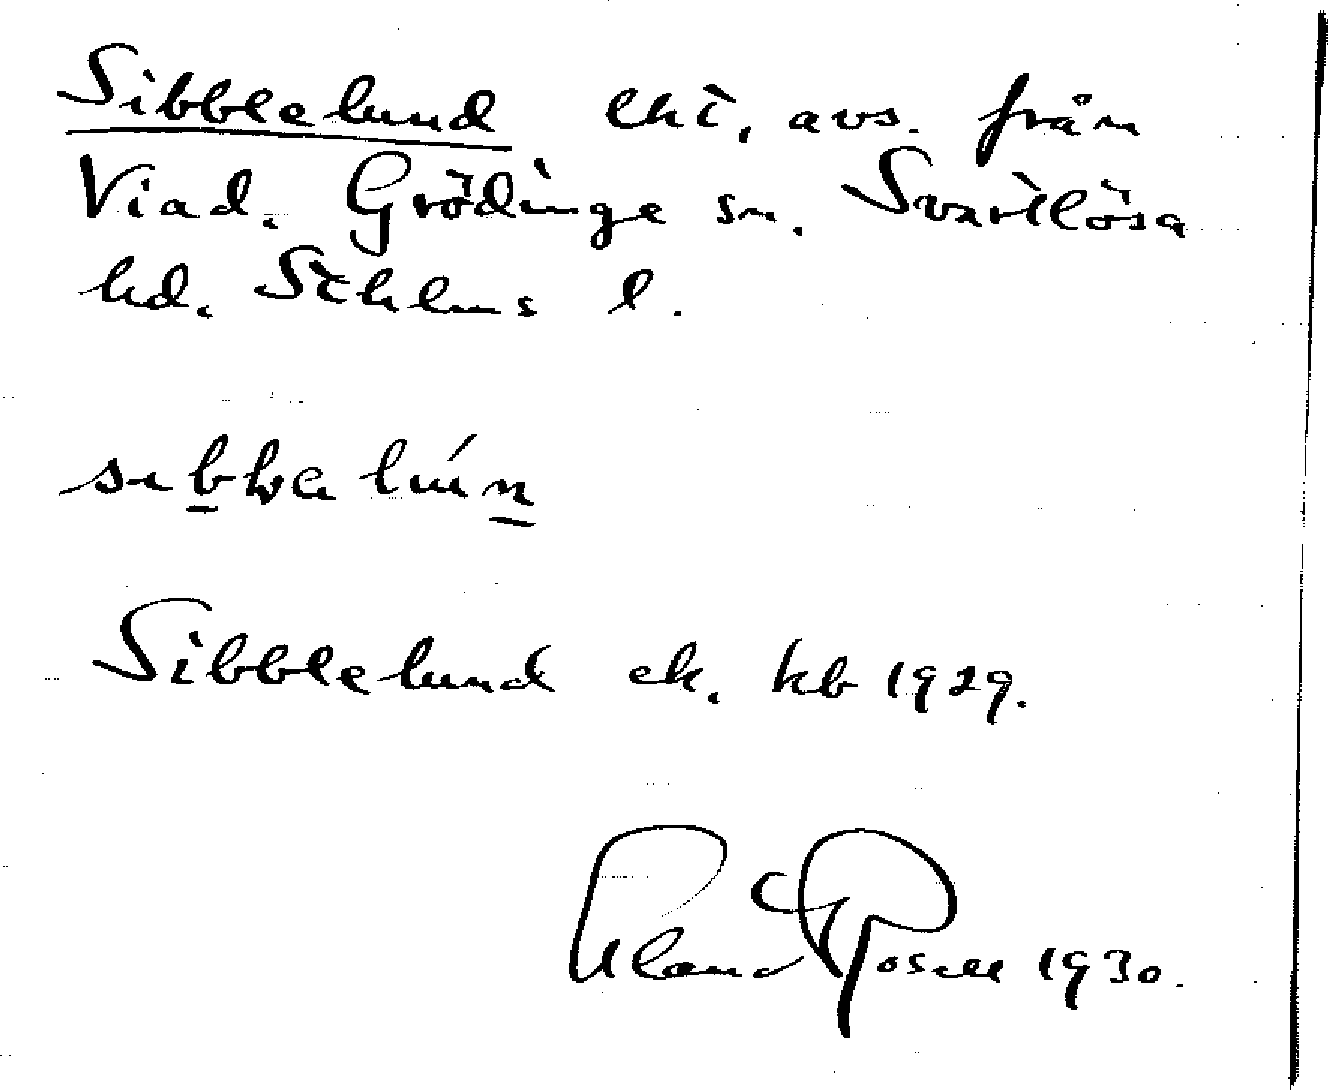 Sibblelund lht, avs. från
Viad. Grödinge sn. Svartlösa
hd. Sthlms l.
Sibblelund ek. kb 1929.
Rosell 1930.